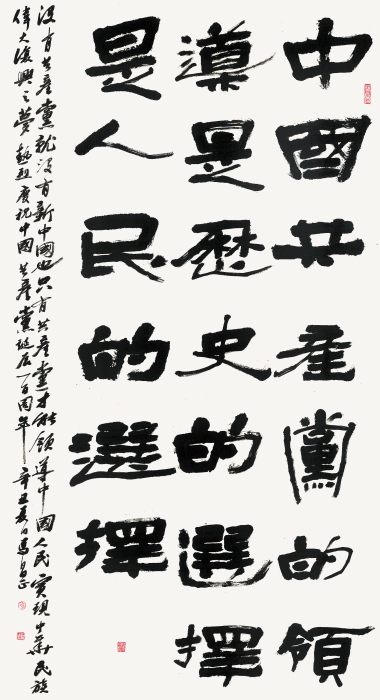 中國共產黨的領
導是歷史的選擇
是人民的選擇
没有共產黨就没有新中國也只有共產黨才能領導中國人民實現中華民族
偉大復興之夢熱烈慶祝中國共產黨誕辰一百周年辛丑夏日馬